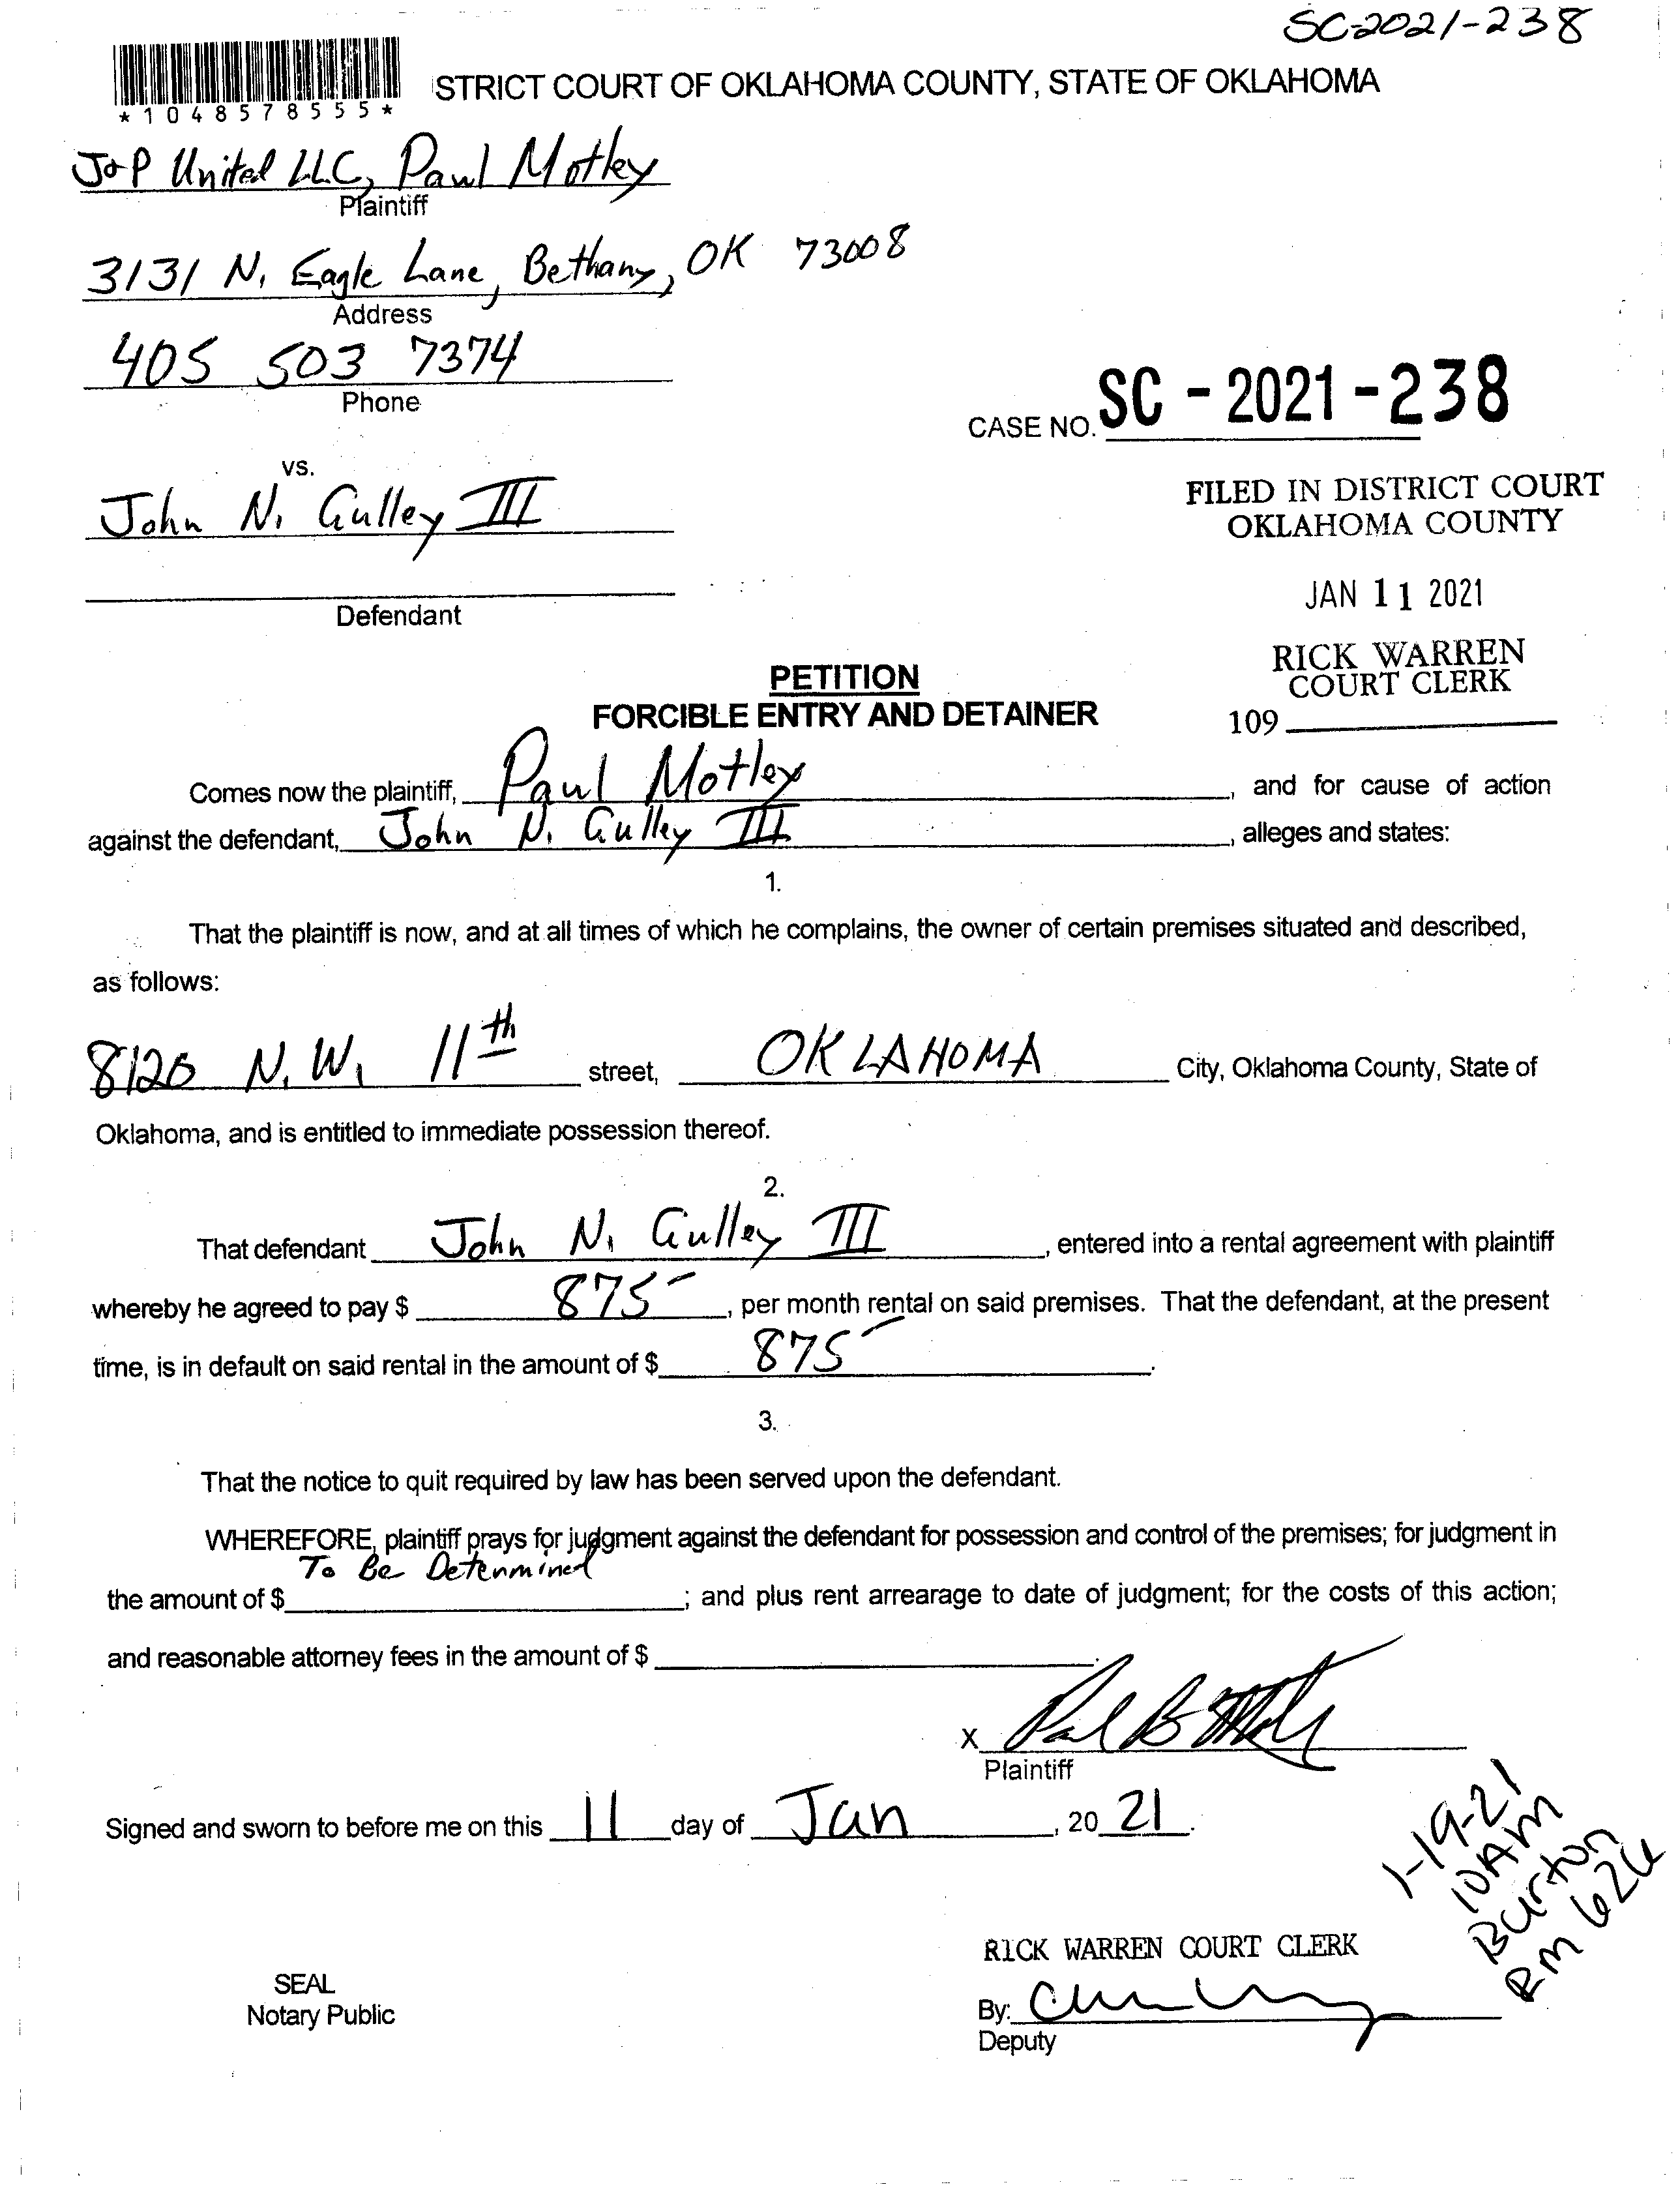 SC-2021-238
STRICT COURT OF OKLAHOMA COUNTY, STATE OF OKLAHOMA
*1048578555*
J&P United LLC, Paul Motley
Plaintiff
3131 N. Eagle Lane, Bethany, OK 73008
Address
405 503 7374
Phone
CASE NO. SC - 2021 - 238
vs.
John N. Gulley III
FILED IN DISTRICT COURT
OKLAHOMA COUNTY
JAN 11 2021
Defendant
RICK WARREN
COURT CLERK
109
PETITION
FORCIBLE ENTRY AND DETAINER
Comes now the plaintiff, Paul Motley, and for cause of action
against the defendant, John N. Gulley III, alleges and states:
1.
That the plaintiff is now, and at all times of which he complains, the owner of certain premises situated and described,
as follows:
8120 N.W. 11th street, OKLAHOMA City, Oklahoma County, State of
Oklahoma, and is entitled to immediate possession thereof.
2.
That defendant John N. Gulley III, entered into a rental agreement with plaintiff
whereby he agreed to pay $ 875-, per month rental on said premises. That the defendant, at the present
time, is in default on said rental in the amount of $ 875-.
3.
That the notice to quit required by law has been served upon the defendant.
WHEREFORE, plaintiff prays for judgment against the defendant for possession and control of the premises; for judgment in
the amount of $ To Be Determined; and plus rent arrearage to date of judgment; for the costs of this action;
and reasonable attorney fees in the amount of $.
X
Plaintiff
Signed and sworn to before me on this 11 day of Jan, 20 21.
1-19-21
10AM
Burton
RM 626
RICK WARREN COURT CLERK
SEAL
Notary Public
By:
Deputy